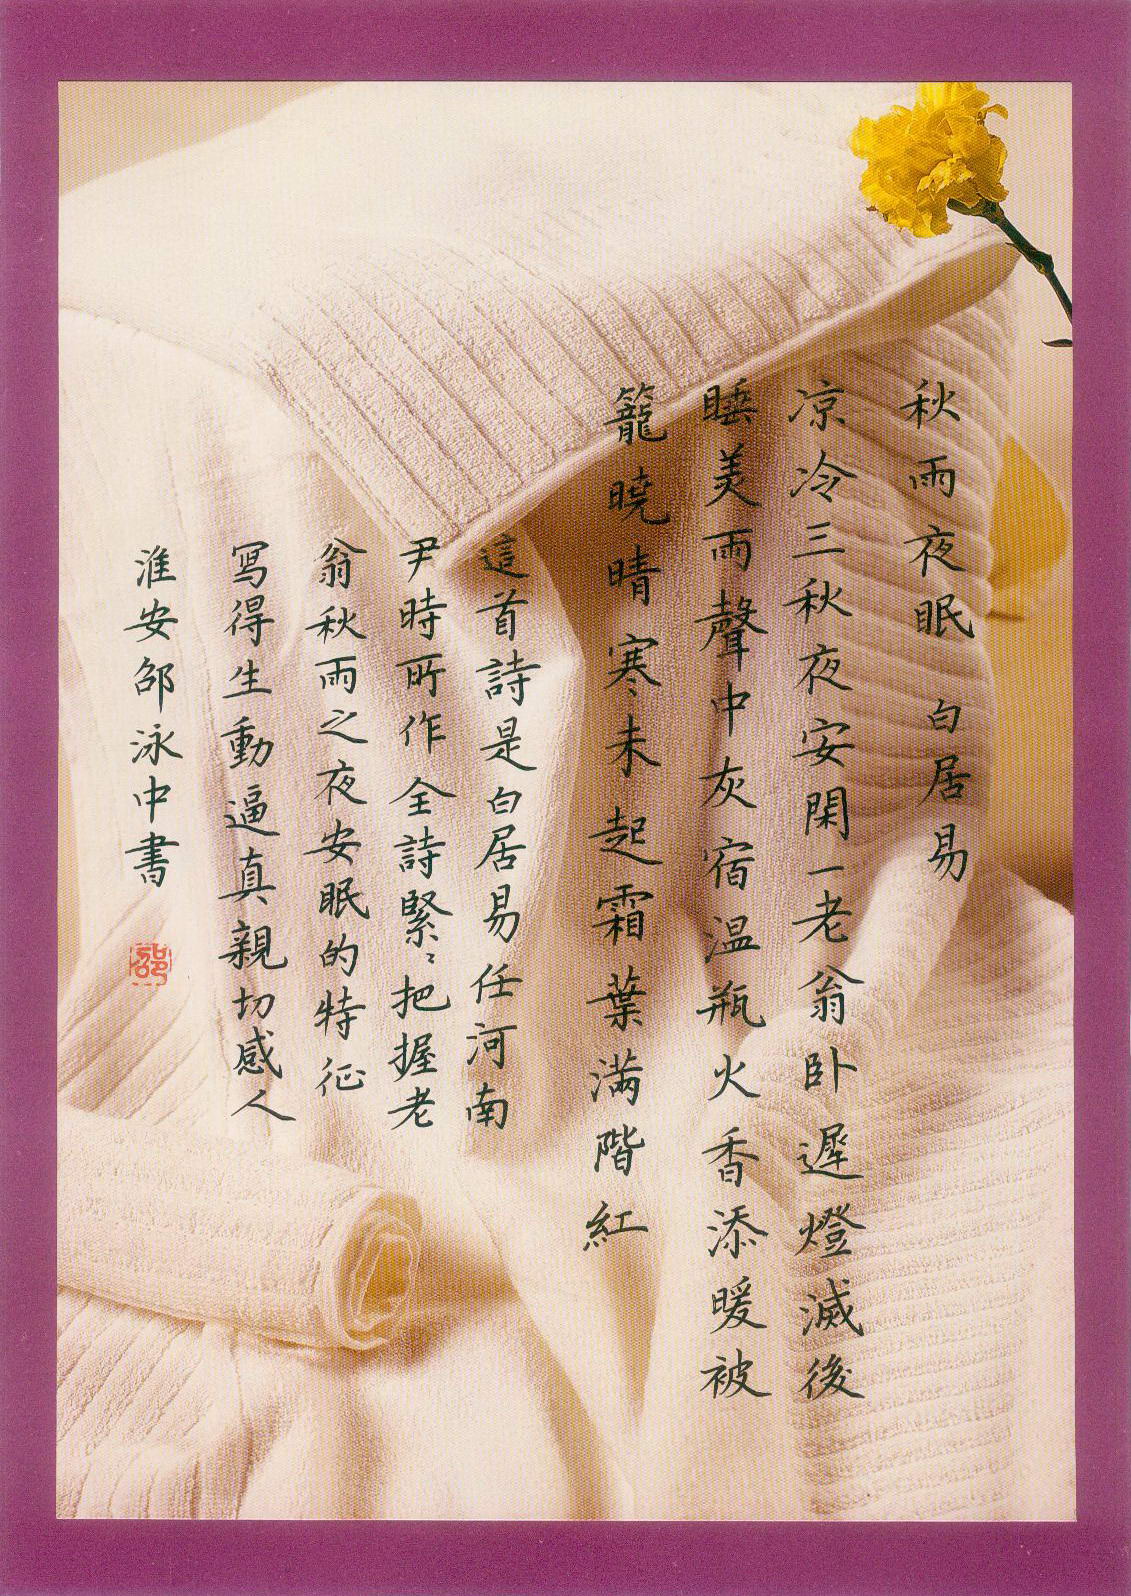 秋雨夜眠 白居易
凉冷三秋夜安閑一老翁卧遲燈滅後
睡美雨聲中灰宿温瓶火香添暖被
籠曉晴寒未起霜葉满階紅
這首詩是白居易任河南
尹時所作全詩緊〻把握老
翁秋雨之夜安眠的特征
寫得生動逼真親切感人
淮安邰泳中書
邰